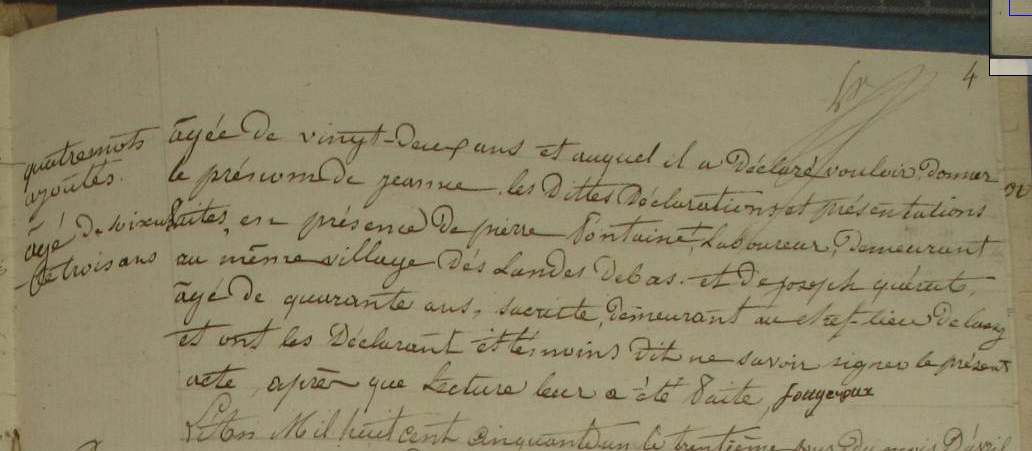 4
quatre mots
ajoutés.
âgé de soixante
et trois ans
âgée de vingt-deux ans et auquel il a Déclaré vouloir Donner
le prénom de jeanne. les Dittes Déclarations et présentations
faites, en présence De pierre fontaine, Laboureur, Demeurant
au même village Dés Landes Debas. et De joseph
âgé de quarante ans, demeurant au chef-lieu De
et ont les Déclarant et témoins Dit ne savoir signer le présent
acte, après que Lecture leur a été faite,
L'An Mil huit cent cinquante un le trentième jour du mois D'avril